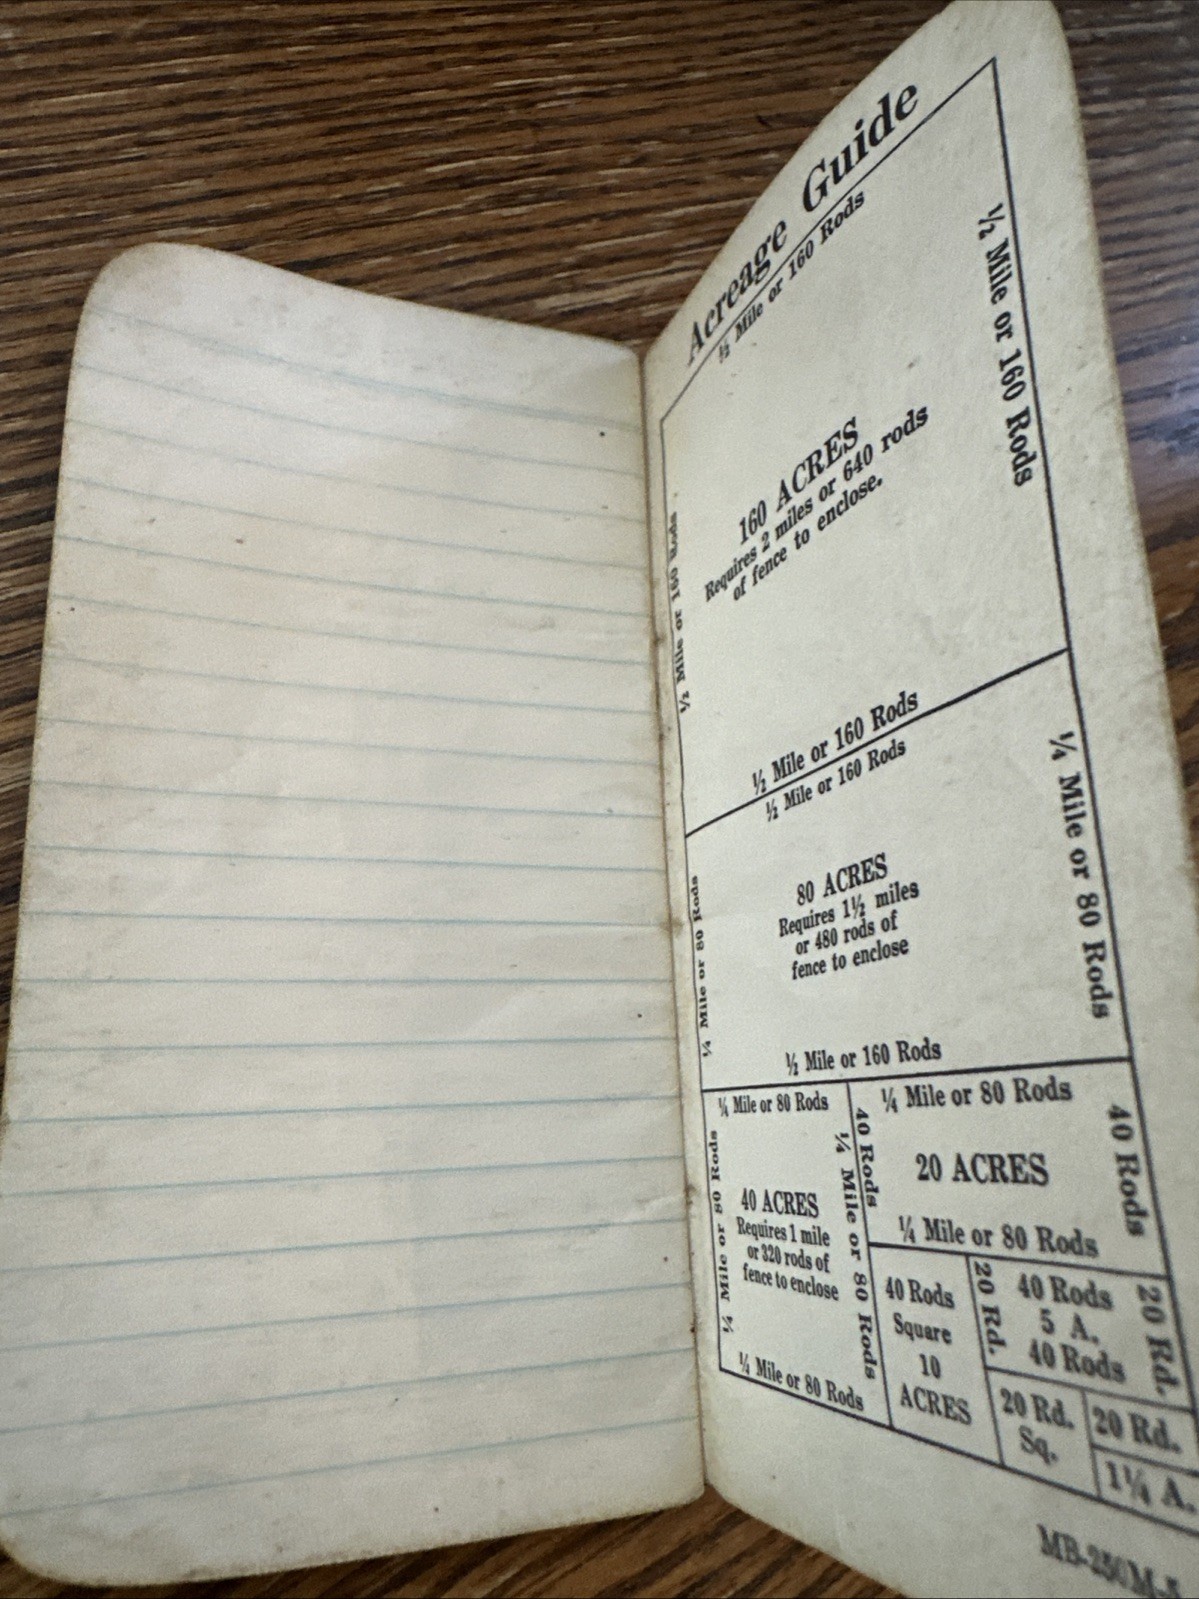 Acreage Guide
½ Mile or 160 Rods
½ Mile or 160 Rods
½ Mile or 160 Rods
160 ACRES
Requires 2 miles or 640 rods
of fence to enclose.
½ Mile or 160 Rods
½ Mile or 160 Rods
¼ Mile or 80 Rods
¼ Mile or 80 Rods
80 ACRES
Requires 1½ miles
or 480 rods of
fence to enclose
½ Mile or 160 Rods
¼ Mile or 80 Rods
¼ Mile or 80 Rods
40 ACRES
Requires 1 mile
or 320 rods of
fence to enclose
¼ Mile or 80 Rods
¼ Mile or 80 Rods
¼ Mile or 80 Rods
40 Rods
20 ACRES
40 Rods
¼ Mile or 80 Rods
40 Rods
Square
10
ACRES
20 Rd.
40 Rods
5 A.
40 Rods
20 Rd.
20 Rd.
Sq.
20 Rd.
1¼ A.